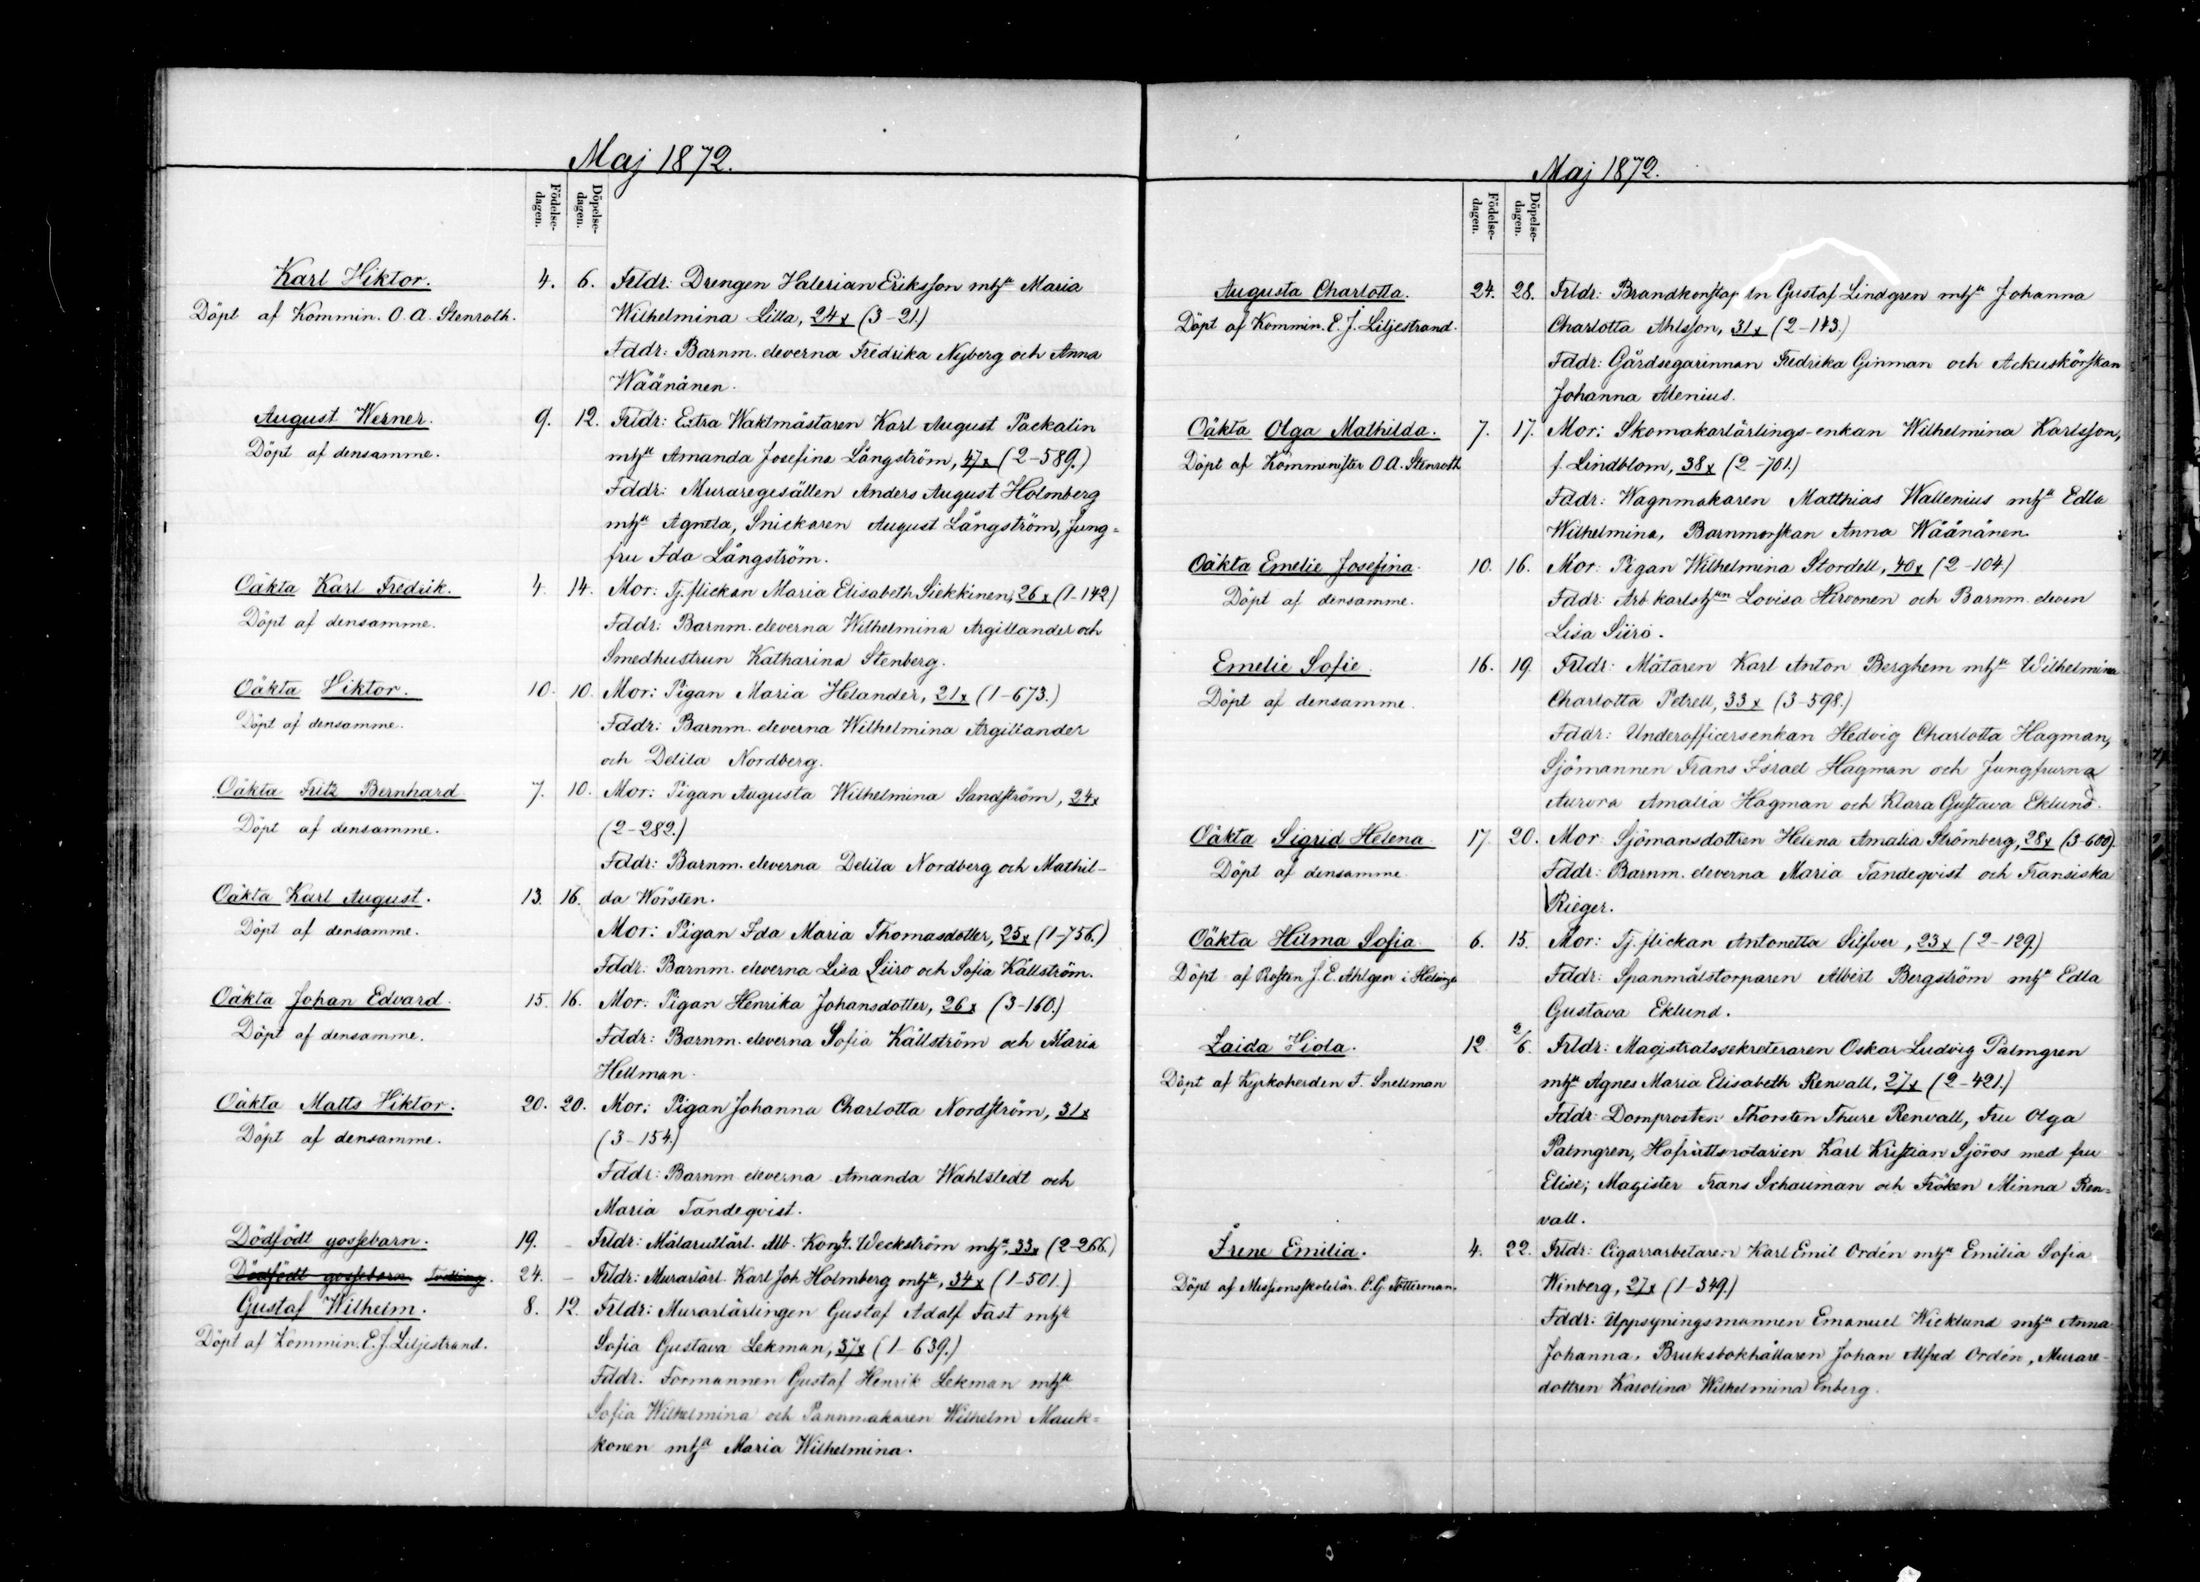 Maj 1872.
Födelse-
dagen.
Döpelse-
dagen.
Karl Viktor. 4. 6. Frldr: Drengen Valerian Eriksson mhu Maria
Döpt af Kommin. O. A. Stenroth. Wilhelmina Lilla, 24 x (3-21.)
Fddr: Barnm. eleverna Fredrika Nyberg och Anna
Wäänänen.
August Werner. 9. 12. Frldr: Extra Waktmästaren Karl August Packalin
Döpt af densamme. mhu Amanda Josefina Långström, 47 x (2-589.)
Fddr: Muraregesällen Anders August Holmberg
mhu Agneta, Snickaren August Långström, Jung-
fru Ida Långström.
Oäkta Karl Fredrik. 4. 14. Mor: Tj. flickan Maria Elisabeth Siekkinen, 26 x (1-142)
Döpt af densamme. Fddr: Barnm. eleverna Wilhelmina Argillander och
Smedhustrun Katharina Stenberg.
Oäkta Viktor. 10. 10. Mor: Pigan Maria Helander, 21 x (1-673.)
Döpt af densamme. Fddr: Barnm. eleverna Wilhelmina Argillander
och Delila Nordberg.
Oäkta Fritz Bernhard 7. 10. Mor: Pigan Augusta Wilhelmina Sandström, 24 x
Döpt af densamme. (2-282.)
Fddr: Barnm. eleverna Delila Nordberg och Mathil-
Oäkta Karl August. 13. 16. da Wörsten.
Döpt af densamme. Mor: Pigan Ida Maria Thomasdotter, 25 x (1-756.)
Fddr: Barnm. eleverna Lisa Siiro och Sofia Källström.
Oäkta Johan Edvard. 15. 16. Mor: Pigan Henrika Johansdotter, 26 x (3-160.)
Döpt af densamme. Fddr: Barnm. eleverna Sofia Källström och Maria
Hellman.
Oäkta Matts Viktor. 20. 20. Mor: Pigan Johanna Charlotta Nordström, 31 x
Döpt af densamme. (3-154.)
Fddr: Barnm eleverna Amanda Wahlstedt och
Maria Tandeqvist.
Dödfödt gossebarn. 19. - Frldr: Målarutlärl. Alb. Konst. Weckström mhu, 33 x (2-266.)
Dödfödt gossebarn 24. - Frldr: Murarlärl. Karl Joh. Holmberg mhu, 34 x (1-501.)
Gustaf Wilhelm. 8. 12. Frldr: Murarlärlingen Gustaf Adolf Fast mhu
Döpt af Kommin. E. J. Liljestrand. Sofia Gustava Lekman, 37 x (1-639.)
Fddr. Formannen Gustaf Henrik Lekman mhu
Sofia Wilhelmina och Pannmakaren Wilhelm Mauk-
konen mhu Maria Wilhelmina.
Maj 1872.
Födelse-
dagen.
Döpelse-
dagen.
Augusta Charlotta. 24. 28. Frldr: Brandkonstap ln Gustaf Lindgren mhu Johanna
Döpt af Kommin. E. J. Liljestrand. Charlotta Ahlsson, 31 x (2-143.)
Fddr: Gårdsegarinnan Fredrika Ginman och Ackuskörskan
Johanna Alenius.
Oäkta Olga Mathilda. 7. 17. Mor: Skomakarlärlings-enkan Wilhelmina Karlsson,
Döpt af Komminister O. A. Stenroth f. Lindblom, 38 x (2-701.)
Fddr: Wagnmakaren Matthias Wallenius mhu Edla
Wilhelmina, Barnmorskan Anna Wäänänen.
Oäkta Emelie Josefina. 10. 16. Mor: Pigan Wilhelmina Stordell, 40 x (2-104)
Döpt af densamme. Fddr: Arb. karlshun Lovisa Hirvonen och Barnm. eleven
Lisa Siiro.
Emelie Sofie. 16. 19. Frldr: Mätaren Karl Anton Berghem mhu Wilhelmina
Döpt af densamme. Charlotta Petrell, 33 x (3-598.)
Fddr: Underofficersenkan Hedvig Charlotta Hagman,
Sjömannen Frans Israel Hagman och Jungfrurna
Aurora Amalia Hagman och Klara Gustava Eklund.
Oäkta Sigrid Helena. 17. 20. Mor: Sjömansdottren Helena Amalia Strömberg, 28 x (3-600).
Döpt af densamme. Fddr: Barnm. eleverna Maria Tandeqvist och Fransiska
Rieger.
Oäkta Hilma Sofia. 6. 15. Mor: Tj. flickan Antonetta Silfver, 23 x (2-129)
Döpt af Prosten J. E. Ahlgen i Helsinge Fddr: Spanmålstorparen Albert Bergström mhu Edla
Gustava Eklund.
Zaida Viola. 12. 2/6. Frldr: Magistratssekreteraren Oskar Ludvig Palmgren
Döpt af Kyrkoherden F. Snellman mhu Agnes Maria Elisabeth Renvall, 27 x (2-421.)
Fddr: Domprosten Thorsten Thure Renvall, Fru Olga
Palmgren, Hofrättsnotarien Karl Kristian Sjöros med fru
Elise; Magister Frans Schauman och Fröken Minna Ren-
vall.
Irene Emilia. 4. 22. Frldr: Cigarrarbetaren Karl Emil Ordén mhu Emilia Sofia
Döpt af Missionsskolelär. C. G. Tötterman. Winberg, 27 x (1-349.)
Fddr: Uppsyningsmannen Emanuel Wicklund mhu Anna
Johanna, Bruksbokhållaren Johan Alfred Ordén, Murare-
dottren Karolina Wilhelmina Enberg.